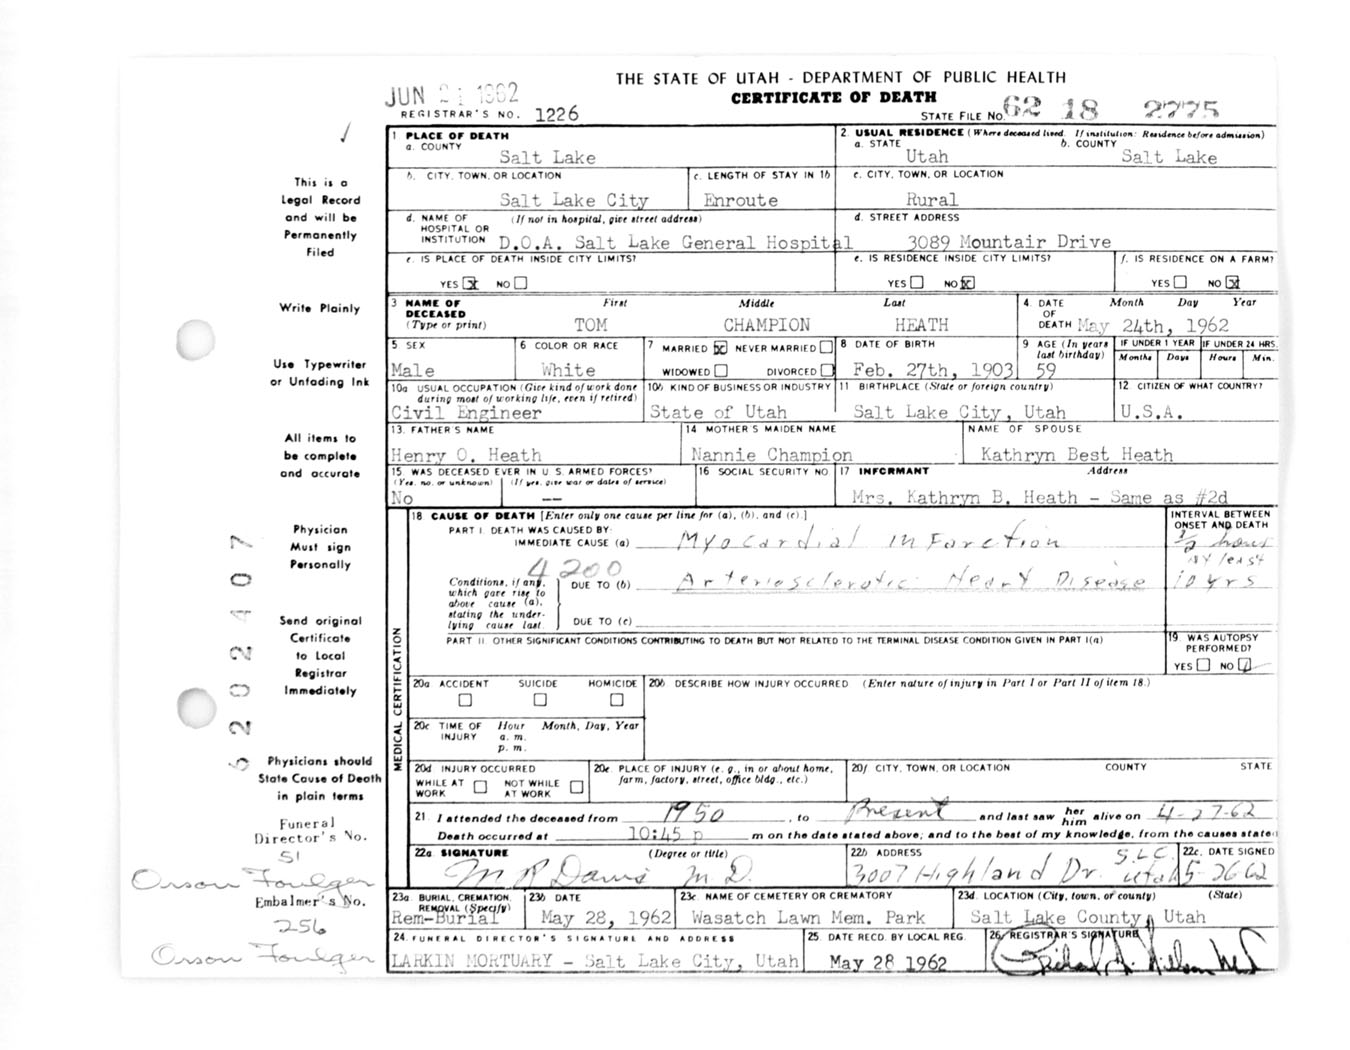 THE STATE OF UTAH - DEPARTMENT OF PUBLIC HEALTH
CERTIFICATE OF DEATH
JUN 21 1962
REGISTRAR'S NO. 1226
STATE FILE NO. 62 18 2775
This is a
Legal Record
and will be
Permanently
Filed
Write Plainly
Use Typewriter
or Unfading Ink
All items to
be complete
and accurate
Physician
Must sign
Personally
Send original
Certificate
to Local
Registrar
Immediately
Physicians should
State Cause of Death
in plain terms
Funeral
Director's No.
51
Orson Foulger
Embalmer's No.
256
Orson Foulger
1 PLACE OF DEATH
a. COUNTY
Salt Lake
2. USUAL RESIDENCE (Where deceased lived. If institution: Residence before admission)
a. STATE b. COUNTY
Utah Salt Lake
b. CITY, TOWN, OR LOCATION
Salt Lake City
c. LENGTH OF STAY IN 1b
Enroute
c. CITY, TOWN, OR LOCATION
Rural
d. NAME OF HOSPITAL OR INSTITUTION (If not in hospital, give street address)
D.O.A. Salt Lake General Hospital
d. STREET ADDRESS
3089 Mountair Drive
e. IS PLACE OF DEATH INSIDE CITY LIMITS?
YES NO
e. IS RESIDENCE INSIDE CITY LIMITS?
YES NO
f. IS RESIDENCE ON A FARM?
YES NO
3 NAME OF DECEASED (Type or print) First Middle Last
TOM CHAMPION HEATH
4. DATE OF DEATH Month Day Year
May 24th, 1962
5 SEX
Male
6 COLOR OR RACE
White
7 MARRIED NEVER MARRIED
WIDOWED DIVORCED
8 DATE OF BIRTH
Feb. 27th, 1903
9 AGE (In years last birthday)
59
IF UNDER 1 YEAR IF UNDER 24 HRS.
Months Days Hours Min.
10a USUAL OCCUPATION (Give kind of work done during most of working life, even if retired)
Civil Engineer
10b KIND OF BUSINESS OR INDUSTRY
State of Utah
11 BIRTHPLACE (State or foreign country)
Salt Lake City, Utah
12 CITIZEN OF WHAT COUNTRY?
U.S.A.
13. FATHER'S NAME
Henry O. Heath
14 MOTHER'S MAIDEN NAME
Nannie Champion
NAME OF SPOUSE
Kathryn Best Heath
15. WAS DECEASED EVER IN U. S. ARMED FORCES?
(Yes, no, or unknown) (If yes, give war or dates of service)
No --
16 SOCIAL SECURITY NO
17 INFORMANT Address
Mrs. Kathryn B. Heath - Same as #2d
MEDICAL CERTIFICATION
18 CAUSE OF DEATH [Enter only one cause per line for (a), (b), and (c).]
PART I. DEATH WAS CAUSED BY:
IMMEDIATE CAUSE (a) Myocardial infarction
INTERVAL BETWEEN ONSET AND DEATH
1/2 hour
4200
Conditions, if any, which gave rise to above cause (a), stating the underlying cause last.
DUE TO (b) Arteriosclerotic Heart Disease
at least
10 yrs
DUE TO (c)
PART II. OTHER SIGNIFICANT CONDITIONS CONTRIBUTING TO DEATH BUT NOT RELATED TO THE TERMINAL DISEASE CONDITION GIVEN IN PART I(a)
19. WAS AUTOPSY PERFORMED?
YES NO
20a ACCIDENT SUICIDE HOMICIDE
20b. DESCRIBE HOW INJURY OCCURRED (Enter nature of injury in Part I or Part II of item 18.)
20c TIME OF INJURY Hour Month, Day, Year
a. m.
p. m.
20d INJURY OCCURRED
WHILE AT WORK NOT WHILE AT WORK
20e. PLACE OF INJURY (e. g., in or about home, farm, factory, street, office bldg., etc.)
20f CITY, TOWN, OR LOCATION COUNTY STATE
21. I attended the deceased from 1950, to Present and last saw her him alive on 4-27-62
Death occurred at 10:45 p m on the date stated above; and to the best of my knowledge, from the causes stated
22a SIGNATURE (Degree or title)
M R Davis M.D.
22b ADDRESS
3007 Highland Dr. S.L.C. Utah
22c. DATE SIGNED
5-26-62
23a. BURIAL, CREMATION, REMOVAL (Specify)
Rem-Burial
23b DATE
May 28, 1962
23c NAME OF CEMETERY OR CREMATORY
Wasatch Lawn Mem. Park
23d. LOCATION (City, town, or county) (State)
Salt Lake County, Utah
24. FUNERAL DIRECTOR'S SIGNATURE AND ADDRESS
LARKIN MORTUARY - Salt Lake City, Utah
25. DATE RECD. BY LOCAL REG.
May 28 1962
26. REGISTRAR'S SIGNATURE